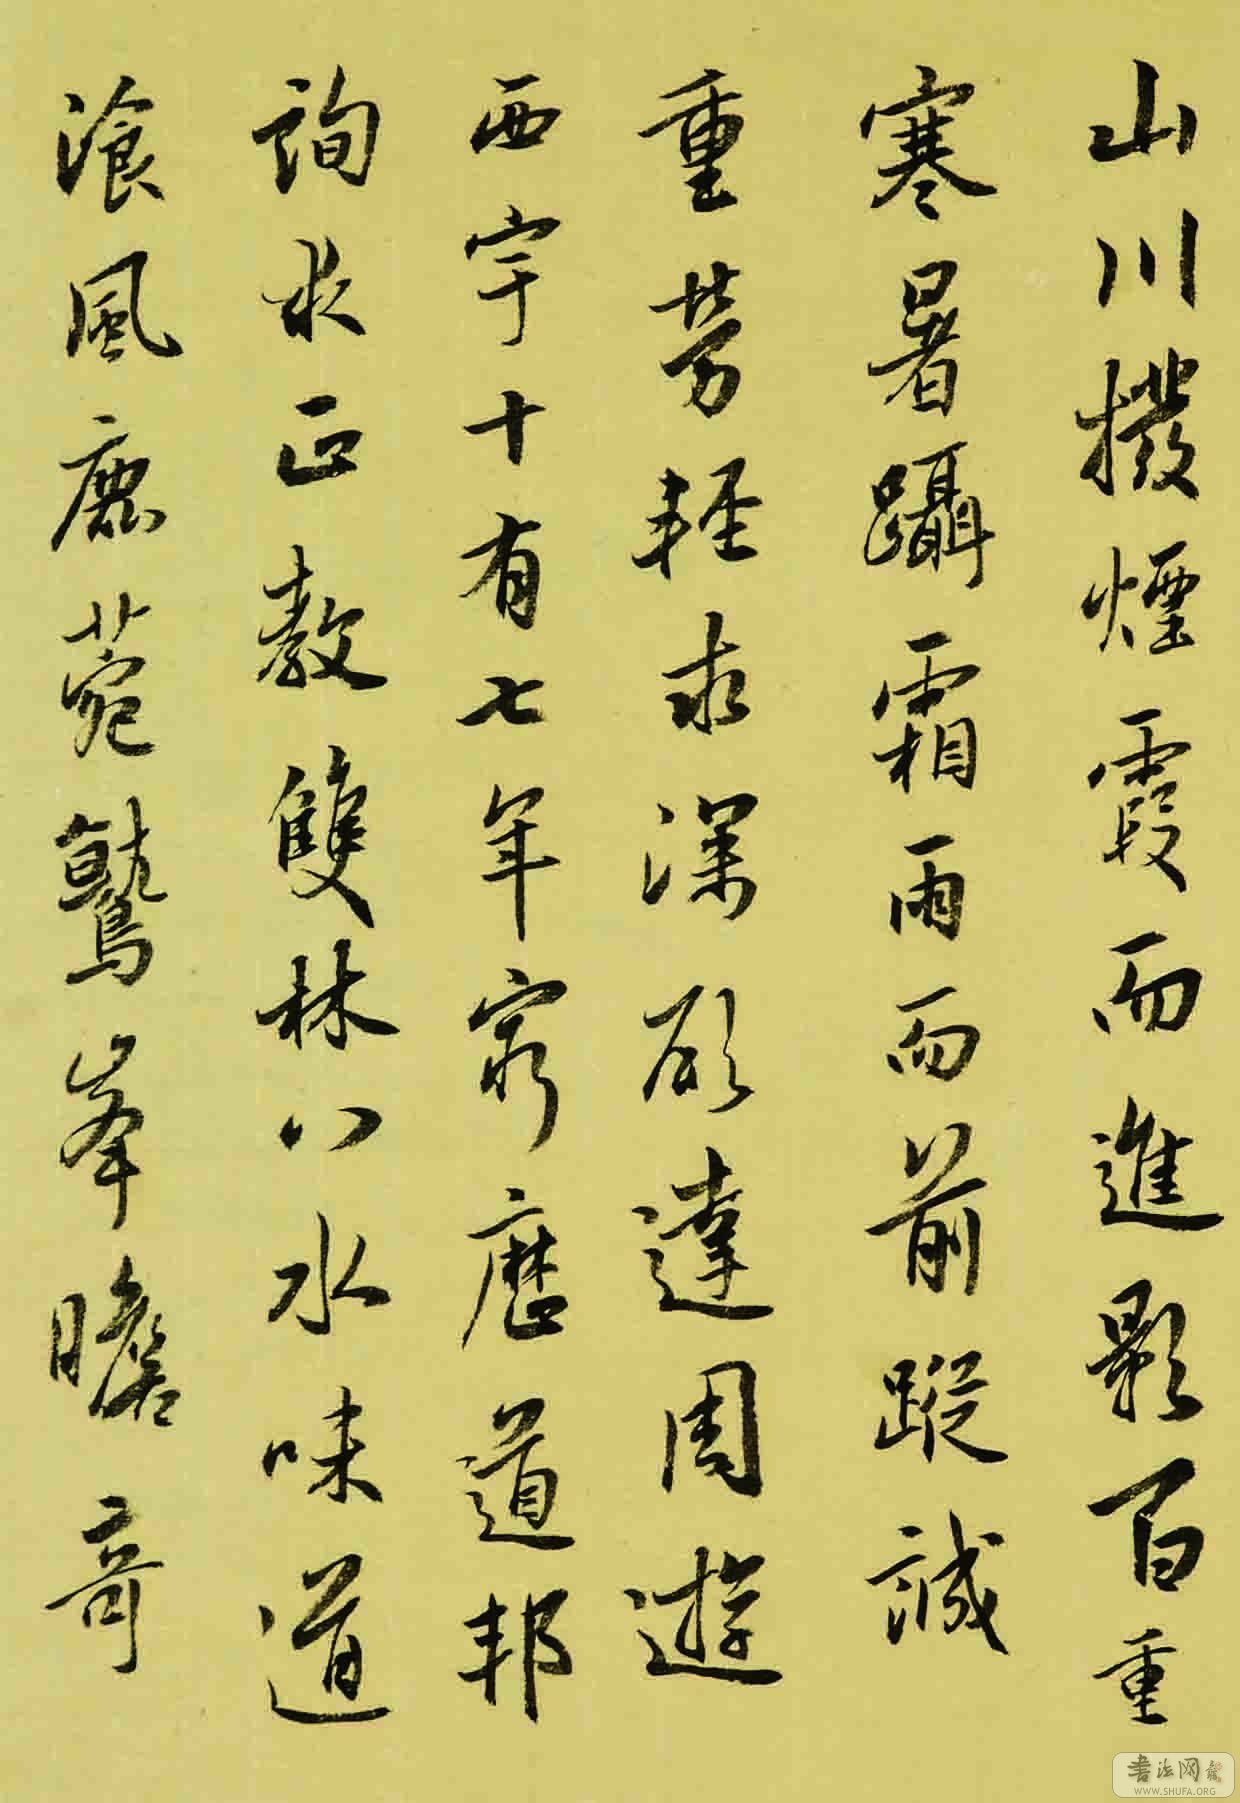 山川撥煙霞而進影百重
寒暑躡霜雨而前蹤誠
重勞輕求深願達周遊
西宇十有七年窮歷道邦
詢求正教雙林八水味道
飡風鹿菀鷲峯瞻奇
書法网
WWW.SHUFA.ORG